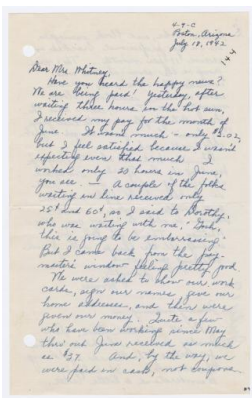 4-9-C
Poston, Arizona
July 18, 1942
Dear Mrs. Whitney,
Have you heard the happy news?
We are being paid! Yesterday, after
waiting three hours in the hot sun,
I received my pay for the month of
June. It wasn't much - only
but I feel satisfied because I wasn't
expecting even that much. I
worked only 20 hours in June,
you see. — A couple of the folks
waiting in line received only
25¢ and 60¢, as I said to Dorothy,
who was waiting with me, "Gosh,
this is going to be embarrassing."
But I came back from the pay-
master's window feeling pretty good.
We were asked to show our work
cards, sign our names, give our
home addresses, and then were
given our money. Quite a few
who have been working since May
thru June received as much
as $37. And, by the way, we
were paid in cash, not coupons.